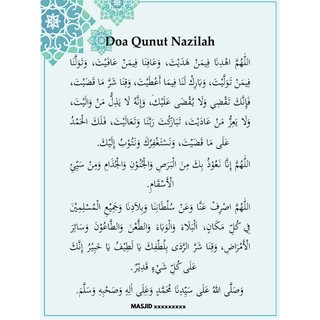 Doa Qunut Nazilah
اَللّٰهُمَّ اهْدِنَا فِيمَنْ هَدَيْتَ، وَعَافِنَا فِيمَنْ عَافَيْتَ، وَتَوَلَّنَا
فِيمَنْ تَوَلَّيْتَ، وَبَارِكْ لَنَا فِيمَا أَعْطَيْتَ، وَقِنَا شَرَّ مَا قَضَيْتَ،
فَإِنَّكَ تَقْضِي وَلَا يُقْضَى عَلَيْكَ، وَإِنَّهُ لَا يَذِلُّ مَنْ وَالَيْتَ،
وَلَا يَعِزُّ مَنْ عَادَيْتَ، تَبَارَكْتَ رَبَّنَا وَتَعَالَيْتَ، فَلَكَ الْحَمْدُ
عَلَى مَا قَضَيْتَ، وَنَسْتَغْفِرُكَ وَنَتُوْبُ إِلَيْكَ.
اَللّٰهُمَّ إِنَّا نَعُوْذُ بِكَ مِنَ الْبَرَصِ وَالْجُنُوْنِ وَالْجُذَامِ وَمِنْ سَيِّئِ
الْأَسْقَامِ.
اَللّٰهُمَّ اصْرِفْ عَنَّا وَعَنْ سُلْطَانِنَا وَبِلَادِنَا وَجَمِيْعِ الْمُسْلِمِيْنَ
فِي كُلِّ مَكَانٍ، الْبَلَاءَ وَالْوَبَاءَ وَالطَّعْنَ وَالطَّاعُوْنَ وَسَائِرَ
الْأَمْرَاضِ، وَقِنَا شَرَّ الرَّدَى بِلُطْفِكَ يَا لَطِيْفُ يَا خَبِيْرُ إِنَّكَ
عَلَى كُلِّ شَيْءٍ قَدِيْرٌ.
وَصَلَّى اللهُ عَلَى سَيِّدِنَا مُحَمَّدٍ وَعَلَى اٰلِهِ وَصَحْبِهِ وَسَلَّمَ.
MASJID xxxxxxxxx